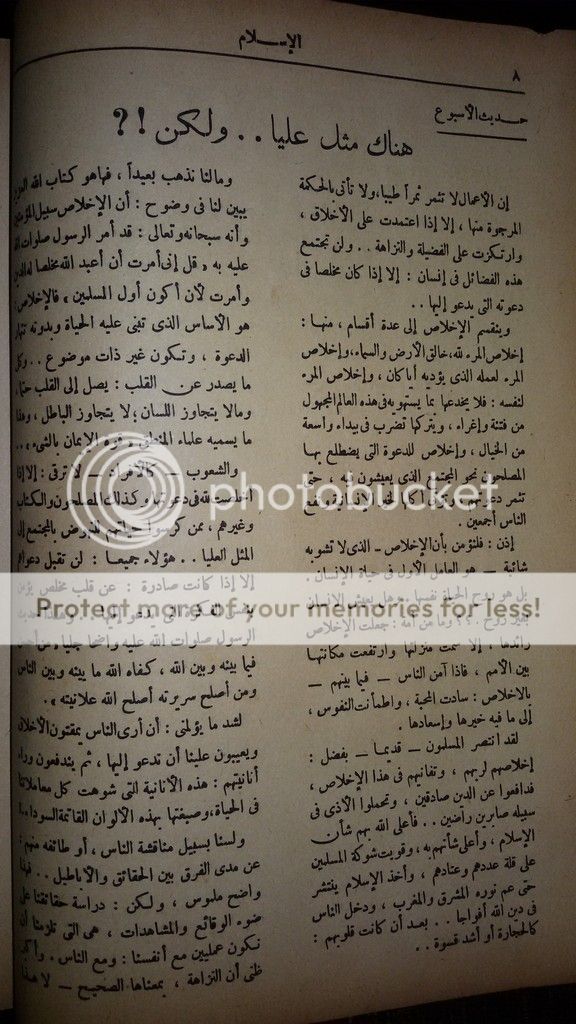 الإسلام
٨
حديث الأسبوع
هناك مثل عليا . . ولكن !؟
إن الأعمال لا تثمر ثمراً طيبا، ولا تأتى بالحكمة
المرجوة منها ، إلا إذا اعتمدت على الأخلاق ،
وارتكزت على الفضيلة والنزاهة .. ولن تجتمع
هذه الفضائل فى إنسان : إلا إذا كان مخلصا فى
دعوته التى يدعو إليها . .
وينقسم الإخلاص إلى عدة أقسام ، منها :
إخلاص المرء لله، خالق الأرض والسماء، وإخلاص
المرء لعمله الذى يؤديه أيا كان ، وإخلاص المرء
لنفسه : فلا يخدعها بما يستهويه فى هذه العالم المجهول
من فتنة وإغراء ، ويتركها تضرب فى بيداء واسعة
من الخيال ، وإخلاص للدعوة التى يضطلع بها
المصلحون نحو المجتمع الذى يعيشون فيه ، حتى
تثمر
الناس أجمعين .
إذن : فلنؤمن بأن الإخلاص ــ الذى لا تشوبه
شائبة ــ هو العامل الأول فى حياة الإنسان .
بل هو روح الحياة نفسها .. وهل يعيش الإنسان
بغير روح . ؟؟ وما من أمة : جعلت الإخلاص
رائدها ، إلا سمت منزلتها وارتفعت مكانتها
بين الأمم ، فاذا آمن الناس ــ فيما بينهم ــ
بالاخلاص : سادت المحبة ، واطمأنت النفوس ،
إلى ما فيه خيرها وإسعادها .
لقد انتصر المسلمون ــ قديما ــ بفضل :
إخلاصهم لربهم ، وتفانيهم فى هذا الإخلاص ،
فدافعوا عن الدين صادقين ، وتحملوا الأذى فى
سبيله صابرين راضين .. فأعلى الله بهم شأن
الإسلام ، وأعلى شأنهم به ، وقويت شوكة المسلمين
على قلة عددهم وعتادهم ، وأخذ الإسلام ينتشر
حتى عم نوره المشرق والمغرب ، ودخل الناس
فى دين الله أفواجا . . بعد أن كانت قلوبهم :
كالحجارة أو أشد قسوة . .
ومالنا نذهب بعيداً ، فهاهو كتاب الله
يبين لنا فى وضوح : أن الإخلاص سبيل
وأنه سبحانه وتعالى : قد أمر الرسول صلوات الله
عليه به « قل إنى أمرت أن أعبد الله مخلصا له الدين
وأمرت لأن أكون أول المسلمين » فالإخلاص
هو الأساس الذى تبنى عليه الحياة وبدونه تنهار
الدعوة ، وتكون غير ذات موضوع . . وكل
ما يصدر عن القلب : يصل إلى القلب حتما ،
ومالا يتجاوز اللسان ؛ لا يتجاوز الباطل ، وهذا
ما يسميه علماء المنطق
والشعوب ــ كالأفراد ــ لا ترقى : إلا إذا
أخلصت لله فى دعوتها وكذلك المصلحون والكتاب
وغيرهم ، ممن كرسوا حياتهم للنهوض بالمجتمع إلى
المثل العليا .. هؤلاء جميعا : لن تقبل دعواهم
إلا إذا كانت صادرة : عن قلب مخلص
الرسول صلوات الله عليه واضحا جليا « من أحسن
فيما بينه وبين الله ، كفاه الله ما بينه وبين الناس
ومن أصلح سريرته أصلح الله علانيته » .
لشد ما يؤلمنى : أن أرى الناس يمقتون الأخلاق
ويعيبون علينا أن تدعو إليها ، ثم يندفعون وراء
أنانيتهم : هذه الأنانية التى شوهت كل معاملاتنا
فى الحياة، وصبغتها بهذه الألوان القاتمة السوداء
ولسنا بسبيل مناقشة الناس ، أو طائفه منهم :
عن مدى الفرق بين الحقائق والأباطيل .. فهذا
واضح ملموس ، ولكن : دراسة حقائقنا على
ضوء الوقائع والمشاهدات ، هى التى تلزمنا أن
نكون عمليين مع أنفسنا : ومع الناس . وأكبر
ظنى أن النزاهة ، بمعناها الصحيح ــ لا
photobucket
Protect more of your memories for less!